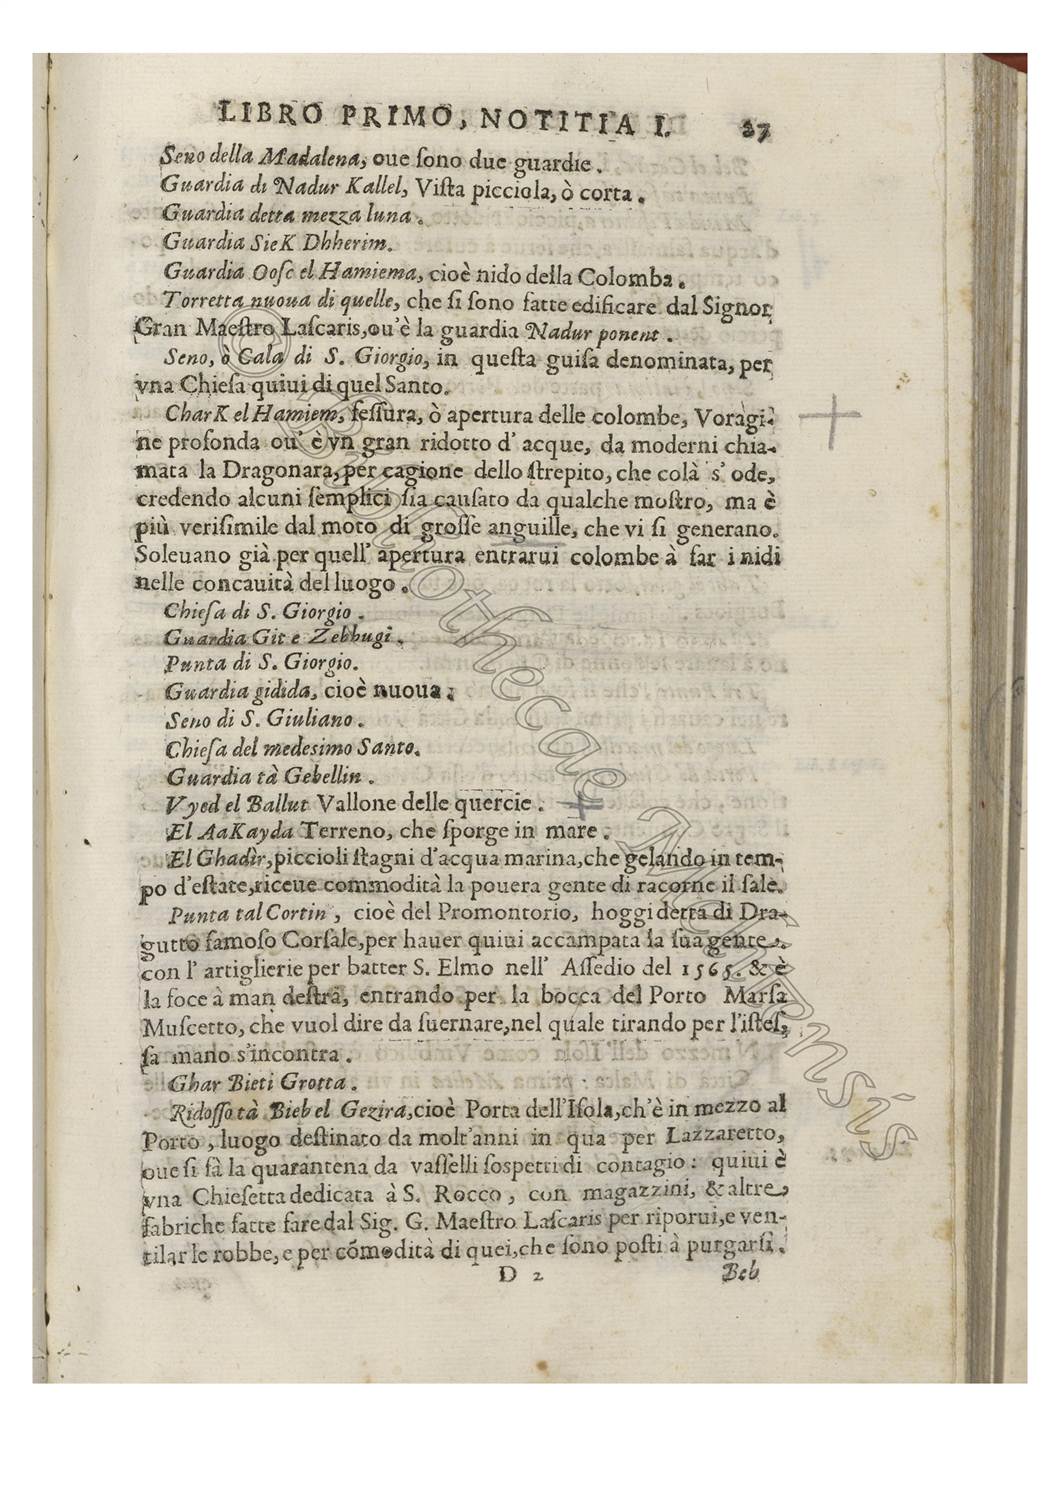 LIBRO PRIMO, NOTITIA I. 27
Seno della Madalena, oue ſono due guardie.
Guardia di Nadur Kallel, Viſta picciola, ò corta.
Guardia detta mezza luna.
Guardia SieK Dhherim.
Guardia Ooſc el Hamiema, cioè nido della Colomba.
Torretta nuoua di quelle, che ſi ſono fatte edificare dal Signor
Gran Maeſtro Laſcaris, ou'è la guardia Nadur ponent.
Seno, ò Cala di S. Giorgio, in queſta guiſa denominata, per
vna Chieſa quiui di quel Santo.
CharK el Hamiem, feſſura, ò apertura delle colombe, Voragi-
ne profonda ou' è vn gran ridotto d' acque, da moderni chia-
mata la Dragonara, per cagione dello ſtrepito, che colà s' ode,
credendo alcuni ſemplici ſia cauſato da qualche moſtro, ma è
più veriſimile dal moto di groſſe anguille, che vi ſi generano.
Soleuano già per quell' apertura entrarui colombe à far i nidi
nelle concauità del luogo.
Chieſa di S. Giorgio.
Guardia Git e Zebbugi.
Punta di S. Giorgio.
Guardia gidida, cioè nuoua.
Seno di S. Giuliano.
Chieſa del medeſimo Santo.
Guardia tà Gebellin.
Vyed el Ballut Vallone delle quercie.
El AaKayda Terreno, che ſporge in mare.
El Ghadir, piccioli ſtagni d'acqua marina, che gelando in tem-
po d'eſtate, riceue commodità la pouera gente di racorne il ſale.
Punta tal Cortin, cioè del Promontorio, hoggi detta di Dra-
gutto famoſo Corſale, per hauer quiui accampata la ſua gente
con l' artiglierie per batter S. Elmo nell' Aſſedio del 1565. & è
la foce à man deſtra, entrando per la bocca del Porto Marſa
Muſcetto, che vuol dire da ſuernare, nel quale tirando per l'iſteſ-
ſa mano s'incontra.
Ghar Bieti Grotta.
Ridoſſo tà Bieb el Gezira, cioè Porta dell'Iſola, ch'è in mezzo al
Porto, luogo deſtinato da molt'anni in qua per Lazzaretto,
oue ſi fà la quarantena da vaſſelli ſoſpetti di contagio: quiui è
vna Chieſetta dedicata à S. Rocco, con magazzini, & altre
fabriche fatte fare dal Sig. G. Maeſtro Laſcaris per riporui, e ven-
tilar le robbe, e per cómodità di quei, che ſono poſti à purgarſi.
D 2 Beb
© Bibliothecae Melitensis